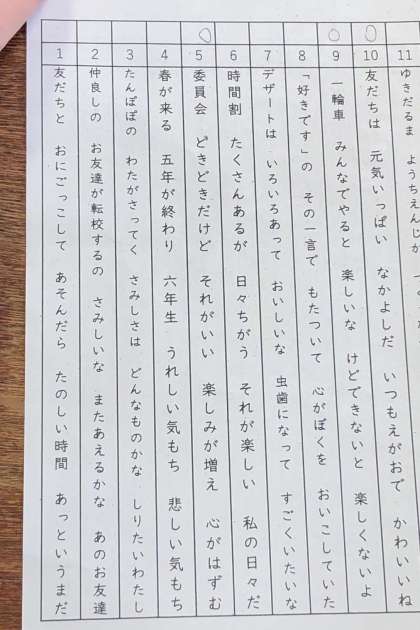 11 ゆきだるま ようちえんじが
10 友だちは 元気いっぱい なかよしだ いつもえがおで かわいいね
9 一輪車 みんなでやると 楽しいな けどできないと 楽しくないよ
8 「好きです」の その一言で もたついて 心がぼくを おいこしていた
7 デザートは いろいろあって おいしいな 虫歯になって すごくいたいな
6 時間割 たくさんあるが 日々ちがう それが楽しい 私の日々だ
5 委員会 どきどきだけど それがいい 楽しみが増え 心がはずむ
4 春が来る 五年が終わり 六年生 うれしい気もち 悲しい気もち
3 たんぽぽの わたがさってく さみしさは どんなものかな しりたいわたし
2 仲良しの お友達が転校するの さみしいな またあえるかな あのお友達
1 友だちと おにごっこして あそんだら たのしい時間 あっというまだ